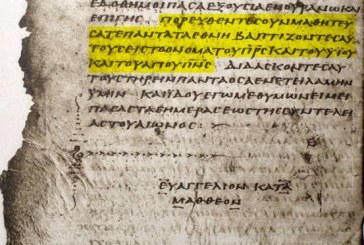 ΕΔΟΘΗΜΟΙΠΑϹΑΕΞΟΥϹΙΑΕΝΟΥΡΑΝΩΚΑΙ
ΕΠΙΓΗϹ ΠΟΡΕΥΘΕΝΤΕϹΟΥΝΜΑΘΗΤΕΥ
ϹΑΤΕΠΑΝΤΑΤΑΕΘΝΗ ΒΑΠΤΙΖΟΝΤΕϹΑΥ
ΤΟΥϹΕΙϹΤΟΟΝΟΜΑΤΟΥΠΡϹΚΑΙΤΟΥΥΙΟΥ
ΚΑΙΤΟΥΑΓΙΟΥΠΝϹ ΔΙΔΑϹΚΟΝΤΕϹΑΥ
ΤΟΥϹΤΗΡΕΙΝΠΑΝΤΑΟϹΑΕΝΕΤΕΙΛΑΜΗΝ
ΥΜΙΝ ΚΑΙΙΔΟΥΕΓΩΜΕΘΥΜΩΝΕΙΜΕΙ
ΠΑϹΑϹΤΑϹΗΜΕΡΑϹΕΩϹΤΗϹϹΥΝΤΕΛΕΙ
ΑϹΤΟΥΑΙΩΝΟϹ
ΕΥΑΓΓΕΛΙΟΝ ΚΑΤΑ
ΜΑΘΘΕΟΝ